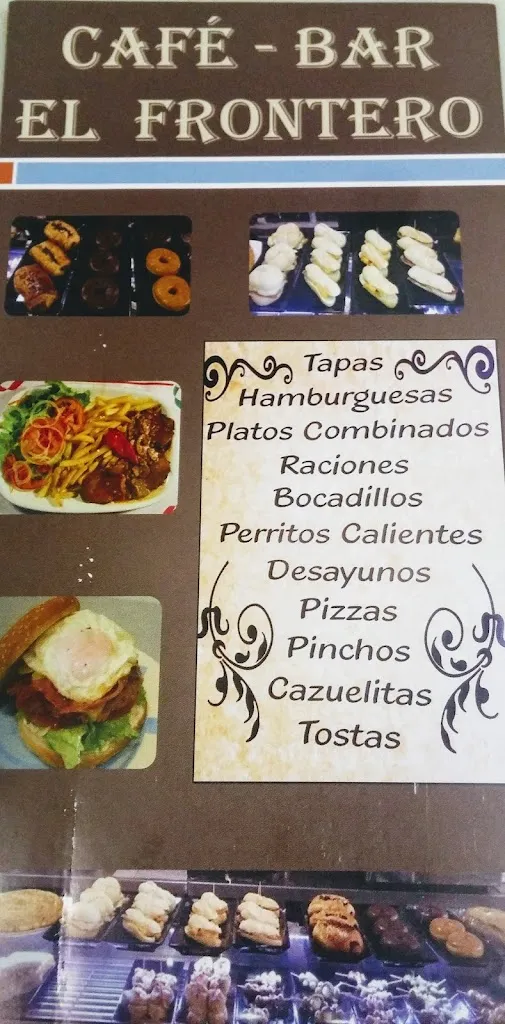 CAFÉ - BAR
EL FRONTERO
Tapas
Hamburguesas
Platos Combinados
Raciones
Bocadillos
Perritos Calientes
Desayunos
Pizzas
Pinchos
Cazuelitas
Tostas